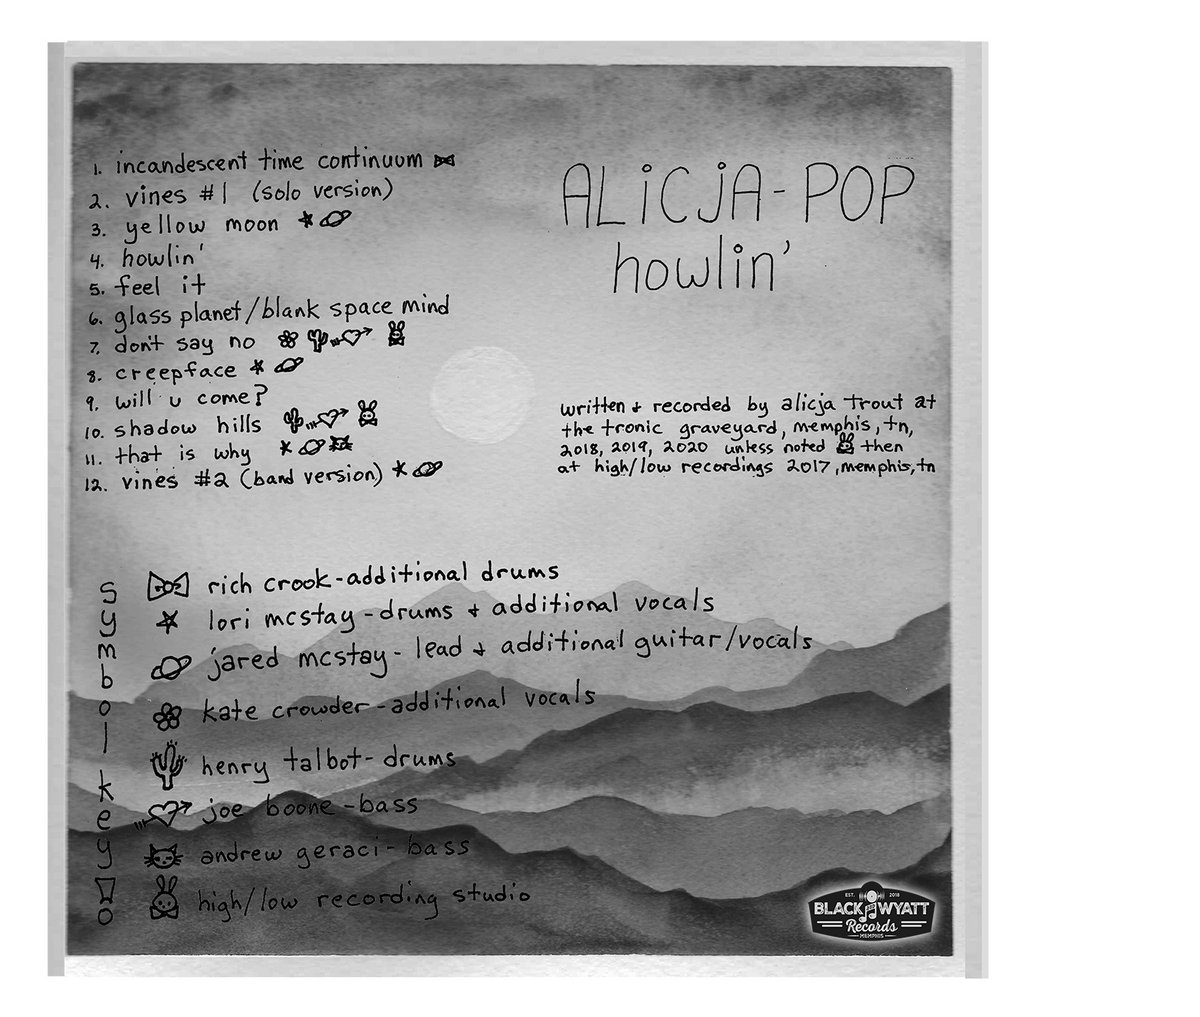 1. incandescent time continuum
2. vines #1 (solo version)
3. yellow moon
4. howlin'
5. feel it
6. glass planet/blank space mind
7. don't say no
8. creepface
9. will u come?
10. shadow hills
11. that is why
12. vines #2 (band version)
ALiCJA-POP
howlin'
written & recorded by alicja trout at
the tronic graveyard, memphis, tn,
2018, 2019, 2020 unless noted then
at high/low recordings 2017, memphis, tn
symbol key!
rich crook-additional drums
lori mcstay-drums & additional vocals
jared mcstay- lead & additional guitar/vocals
kate crowder-additional vocals
henry talbot-drums
joe boone-bass
andrew geraci-bass
high/low recording studio
EST. 2018
BLACK AND WYATT
Records
MEMPHIS